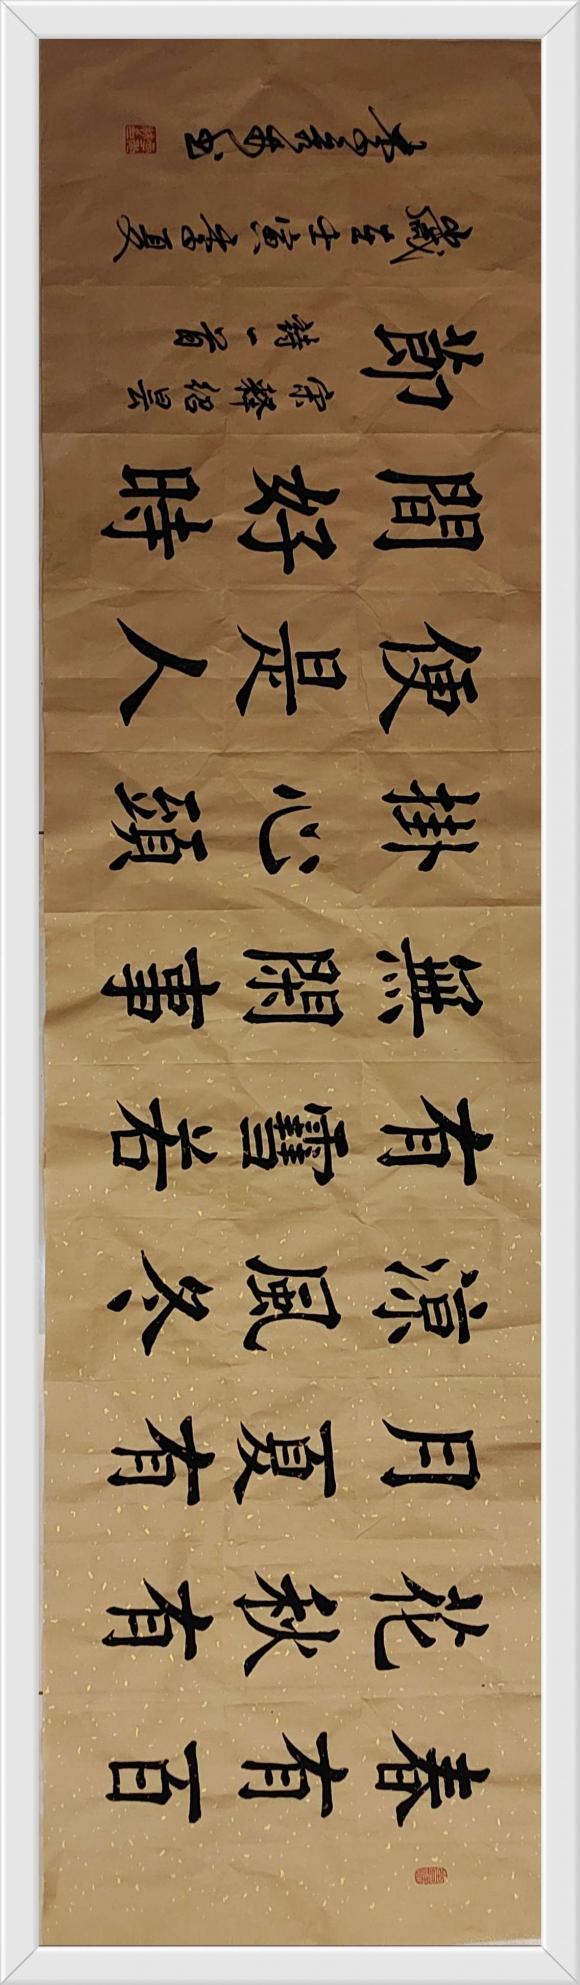 春有百
花秋有
月夏有
涼風冬
有雪若
無閑事
掛心頭
便是人
間好時
節
宋釋紹曇
詩一首
歲在壬寅夏